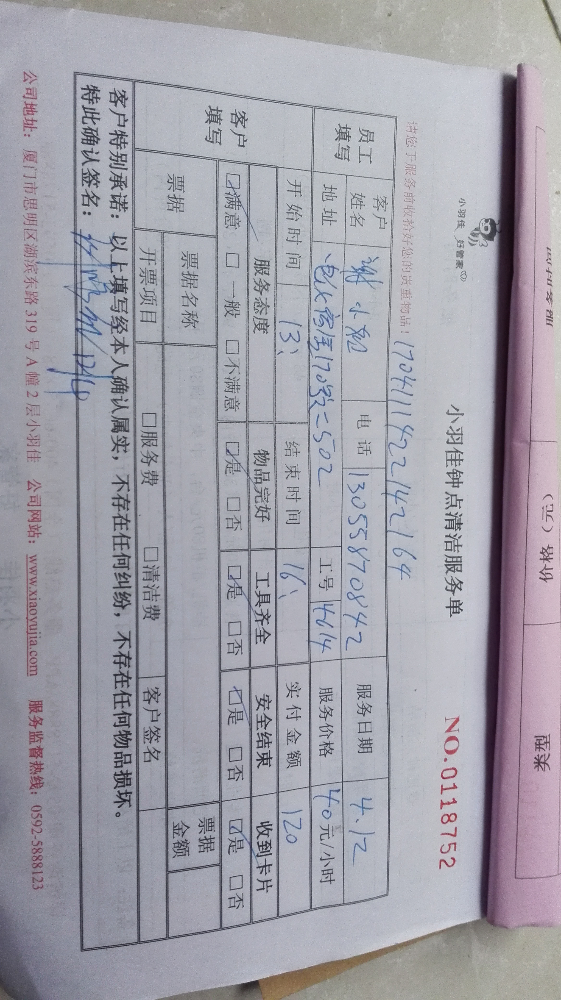 小羽佳 好管家
小羽佳钟点清洁服务单
NO.0118752
请您于服务前收拾好您的贵重物品: 1704111422142164
员工填写 客户姓名 谢小姐 电话 13055870842 服务日期 4.12
地址 2502 工号 4614 服务价格 40元/小时
开始时间 13、 结束时间 16、 实付金额 120
客户填写 服务态度 物品完好 工具齐全 安全结束 收到卡片
☑满意 □一般 □不满意 ☑是 □否 ☑是 □否 ☑是 □否 ☑是 □否
票据 票据名称 票据金额
开票项目 □服务费 □清洁费 客户签名
客户特别承诺:以上填写经本人确认属实,不存在任何纠纷,不存在任何物品损坏。
特此确认签名:
公司地址:厦门市思明区湖滨东路319号A幢2层小羽佳 公司网站:www.xiaoyujia.com 服务监督热线:0592-5888123